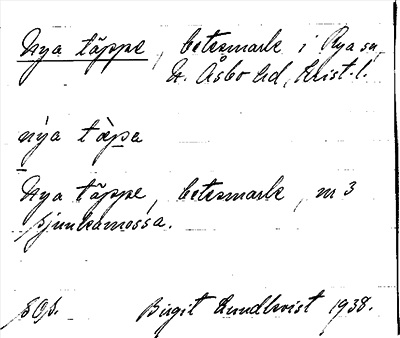 Nya täppe, betesmark i Rya sn,
N. Åsbo hd, Krist. l.
nya täpa
Nya täppe, betesmark, nr 3
Sjunkamossa.
SOS. Birgit Lundkvist 1938.